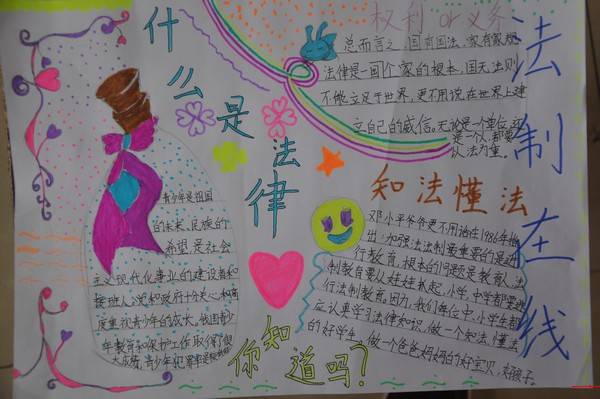 什么是法律
权利 or 义务
总而言之,国有国法,家有家规
法律是一个国家的根本,国无法则
不能立足于世界,更不用说在世界上建
立自己的威信。无论是一个单位还
是一个人,都要
以法为重。
法制在线
知法懂法
邓小平爷爷更不用说在1986年提
出:加强法制重要的是进
行教育,根本的问题是教育人,法
制教育要从娃娃抓起,小学,中学都要进
行法制教育,因为,我们每位中小学生都
应认真学习法律知识,做一个知法懂法
的好学生。做一个爸爸妈妈的好宝贝,好孩子。
青少年是祖国
的未来,民族的
希望,是社会
主义现代化事业的建设者和
接班人,党和政府十分关心和高
度重视青少年的成长。我国青少
年教育和保护工作取得了很
大成绩,青少年犯罪率
你知道吗?